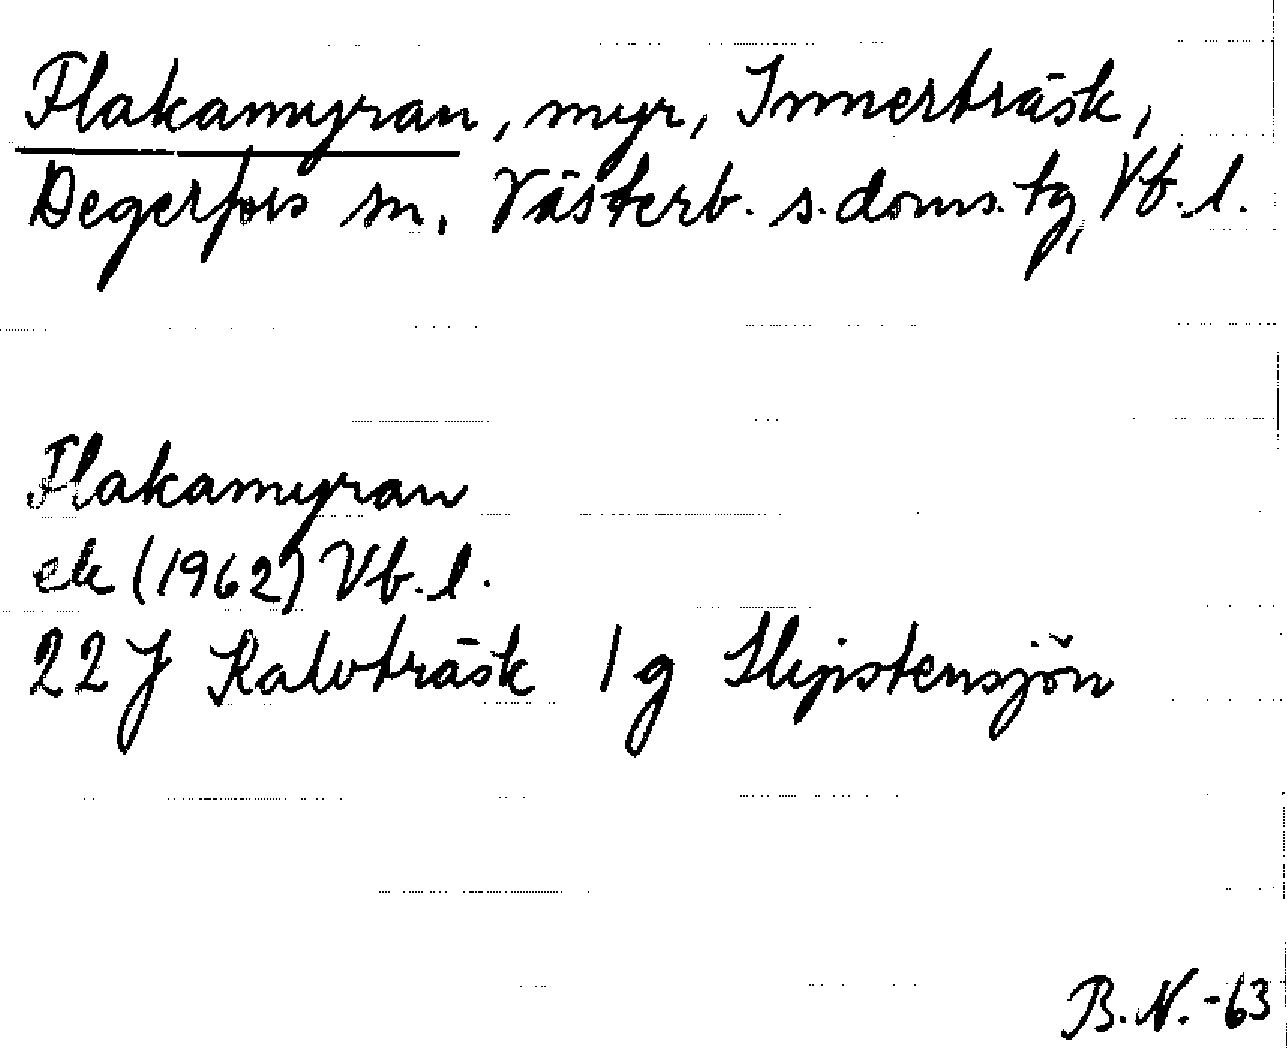 Flakamyran, myr, Innerträsk,
Degerfors sn, Västerb. s. doms. tg, Vb. l.
Flakamyran
ek (1962) Vb. l.
22 J Kalvträsk 1 g Slipstensjön
B. N. -63